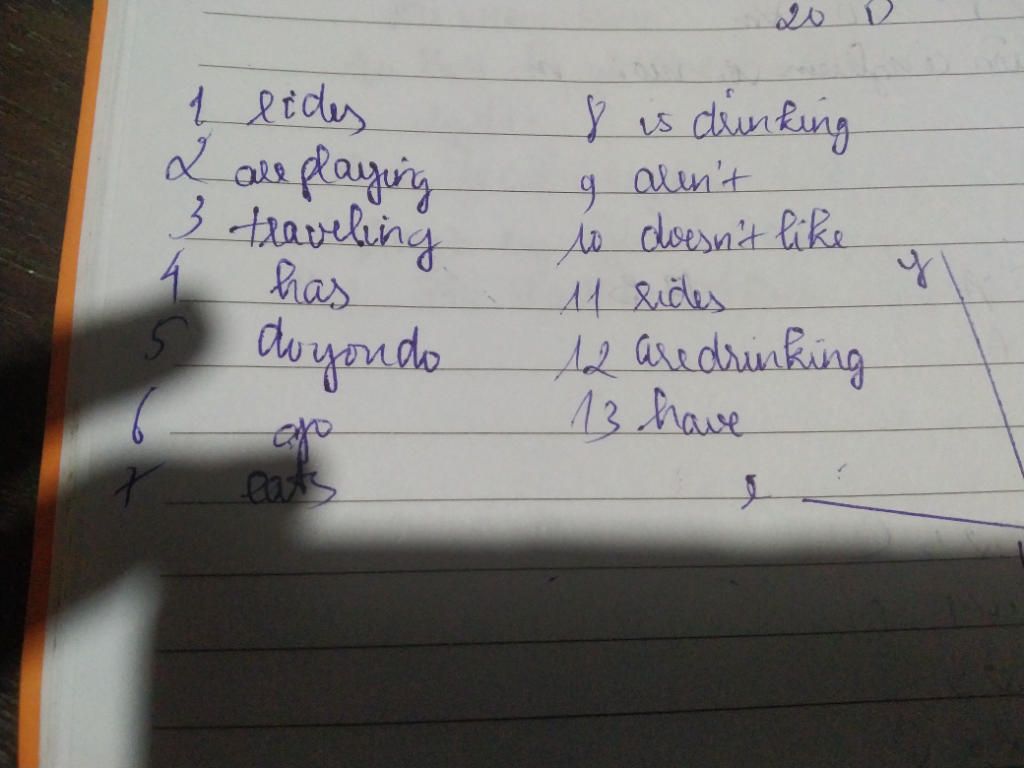 20 D
1 rides
2 are playing
3 traveling
4 has
5 do you do
6 go
7 eats
8 is drinking
9 aren't
10 doesn't like
11 rides
12 are drinking
13 have
y